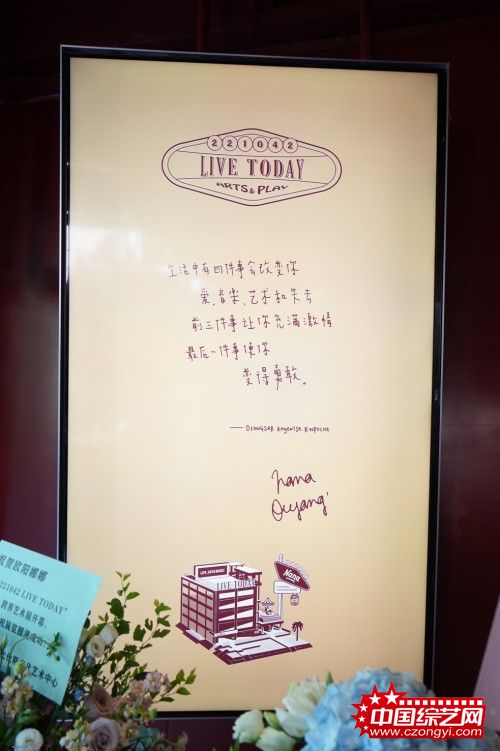 221042
LIVE TODAY
ARTS & PLAY
生活中有四件事会改变你
爱,音樂,艺术和失去
前三件事让你充满激情
最后一件事使你
变得勇敢。
— DZONGSAR KHYENTSE RINPOCHE
nana
Ouyang
LIVE TODAY
Nana
祝贺欧阳娜娜
221042 LIVE TODAY"
跨界艺术展开幕
祝展览圆满成功
艺术中心
中国综艺网
www.czongyi.com